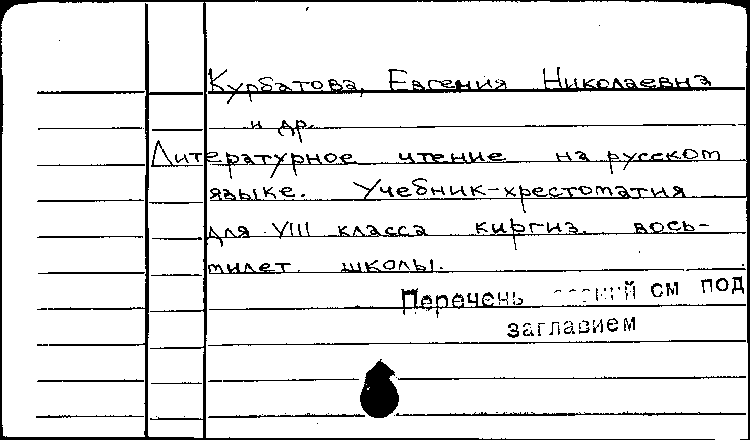 Курбатова, Евгения Николаевна
и др.
Литературное чтение на русском
языке. Учебник-хрестоматия
для VIII класса киргиз. вось-
милет. школы.
Перечень см под
заглавием